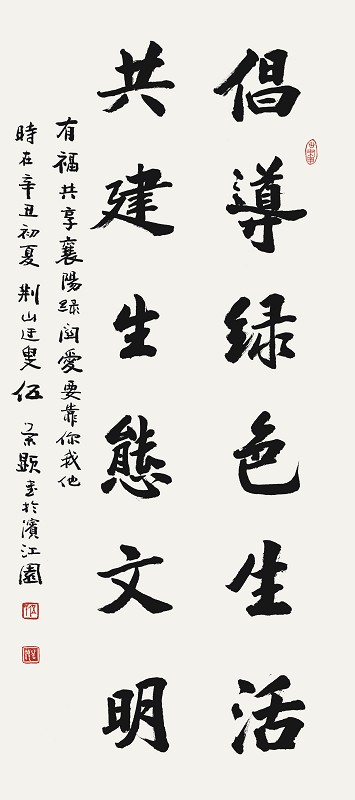 倡導緑色生活
共建生態文明
有福共享襄陽緑 関愛要靠你我他
時在辛丑初夏 荆山迂叟 伍 景顕書於濱江園